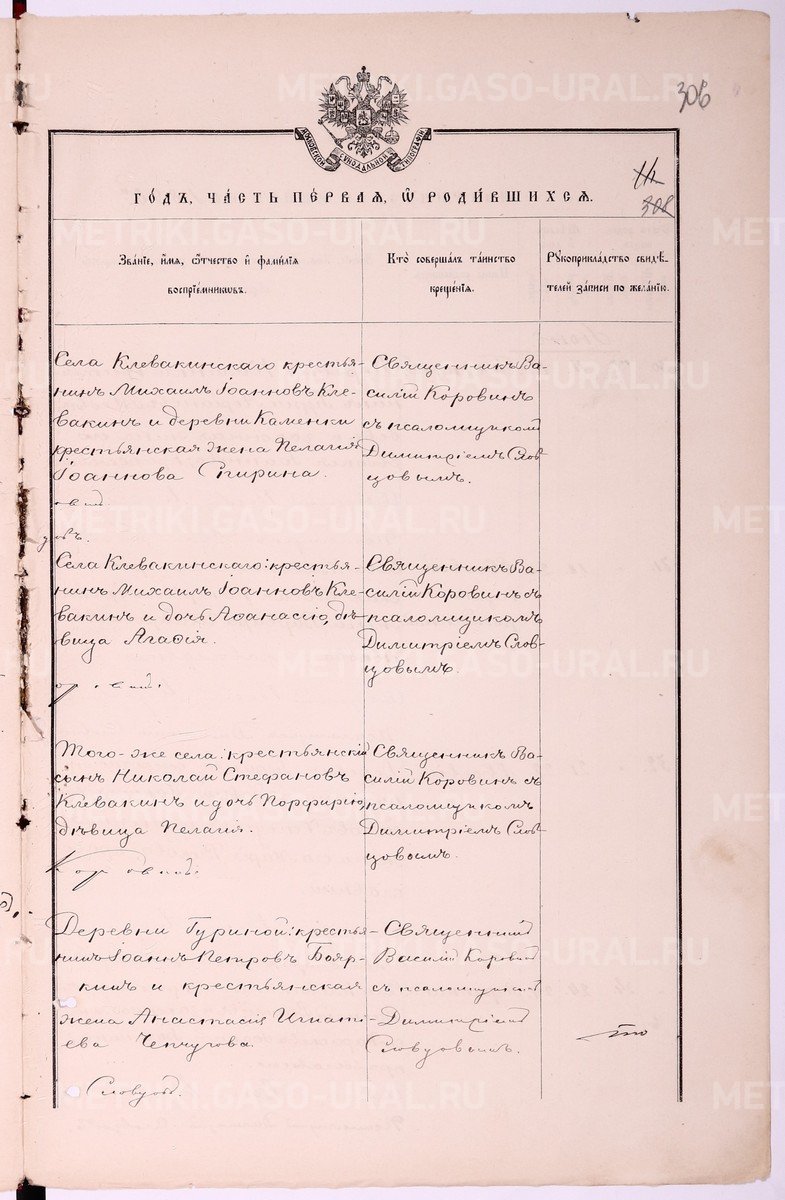 306
Московской Синодальной Типографіи
308
Го́дъ, ча́сть пе́рваѧ, ѡ҆ роди́вшихсѧ.
Зва́нїе, и҆́мѧ, ѻ҆́тчество и҆ фами́лїѧ
воспрїе́мникѡвъ.
Кто̀ соверша́лъ та́инство
креще́нїѧ.
Рꙋкоприкла́дство свидѣ́-
телей за́писи по жела́нїю.
Села Клевакинскаго крестья-
нинъ Михаилъ Іоанновъ Кле-
вакинъ и деревни Каменки
крестьянская жена Пелагія
Іоаннова Спирина.
Священникъ Ва-
силій Коровинъ
съ псаломщикомъ
Димитріемъ Слов-
цовымъ.
Села Клевакинскаго: крестья-
нинъ Михаилъ Іоанновъ Кле-
вакинъ и дочь Аѳанасія, дѣ-
вица Агаѳія.
Священникъ Ва-
силій Коровинъ съ
псаломщикомъ
Димитріемъ Слов-
цовымъ.
Того-же села: крестьянскій
сынъ Николай Стефановъ
Клевакинъ и дочь Порфирія,
дѣвица Пелагія.
Священникъ Ва-
силій Коровинъ съ
псаломщикомъ
Димитріемъ Слов-
цовымъ.
Деревни Гуриной: крестья-
нинъ Іоаннъ Петровъ Бояр-
кинъ и крестьянская
жена Анастасія Игнаті-
ева Чепчугова.
Словцовъ.
Священникъ
Василій Коровинъ
съ псаломщикомъ
Димитріемъ
Словцовымъ.
METRIKI.GASO-URAL.RU